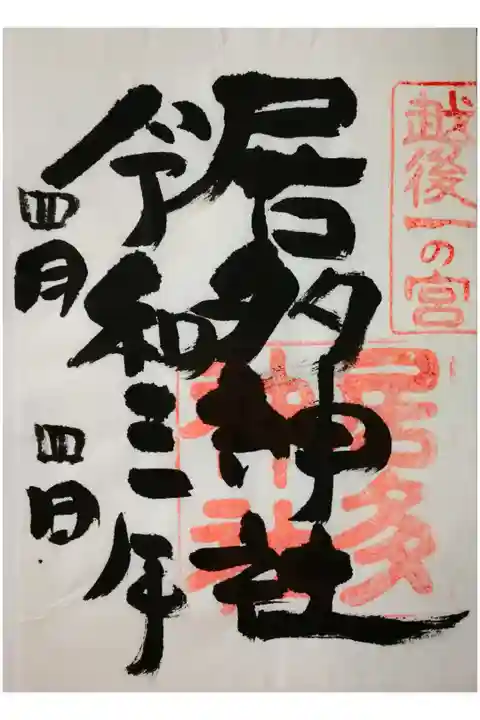 越後一の宮
居多神社
居多
神社
令和三年
四月 四日